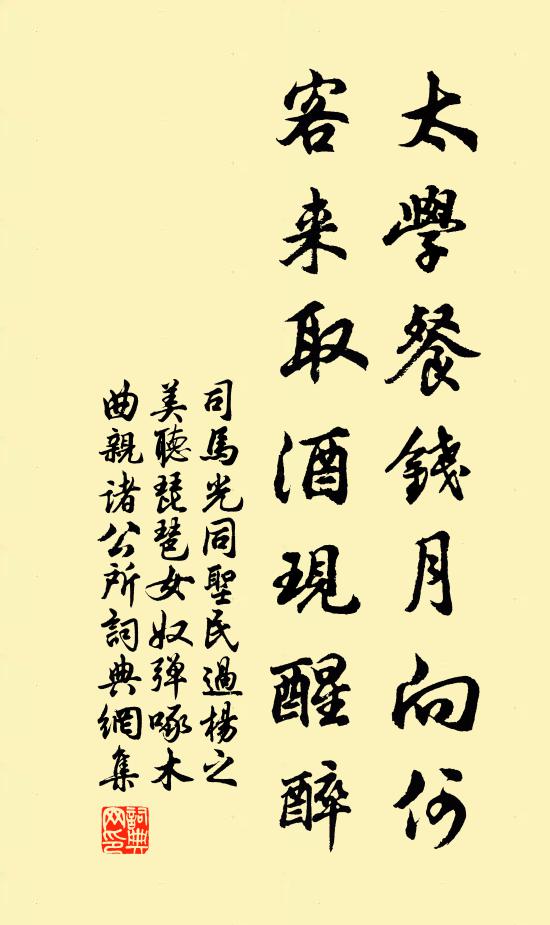 太學餐錢月向何
客来取酒現醒醉
司馬光同聖民過楊之
美聽琵琶女奴弹啄木
曲親諸公所詞典網集
詞典
网印